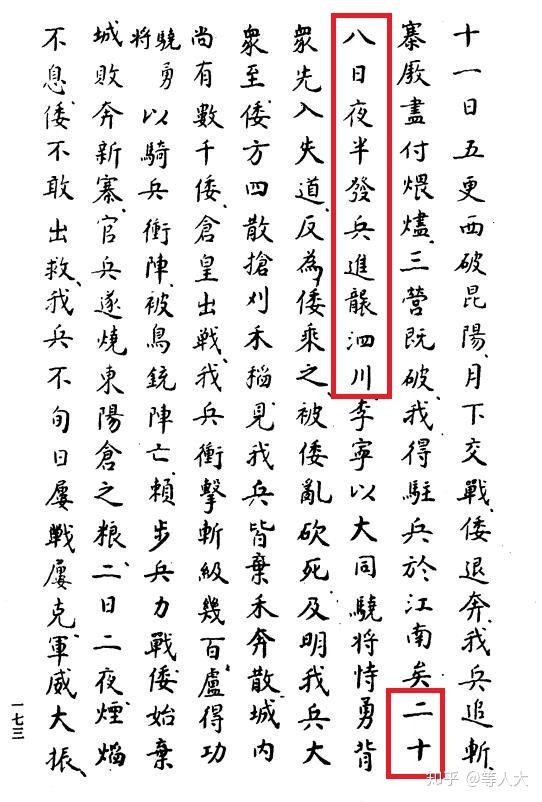 十一日五更西破昆陽、月下交戰、倭退奔、我兵追斬、
寨厫盡付煨燼、三營既破、我得駐兵於江南矣、二十
八日夜半發兵進襲泗川、李寧以大同驍將恃勇背
衆先入失道、反為倭乘之、被倭亂砍死、及明我兵大
衆至、倭方四散搶刈禾稻、見我兵皆棄禾奔散、城内
尚有數千倭、倉皇出戰、我兵衝擊斬級幾百、盧得功
驍將勇以騎兵衝陣、被鳥銃陣亡、賴步兵力戰、倭始棄
城敗奔新寨、官兵遂燒東陽倉之粮、二日二夜煙焰
不息、倭不敢出救、我兵不旬日屢戰屢克、軍威大振、
一七三
知乎 @等人大